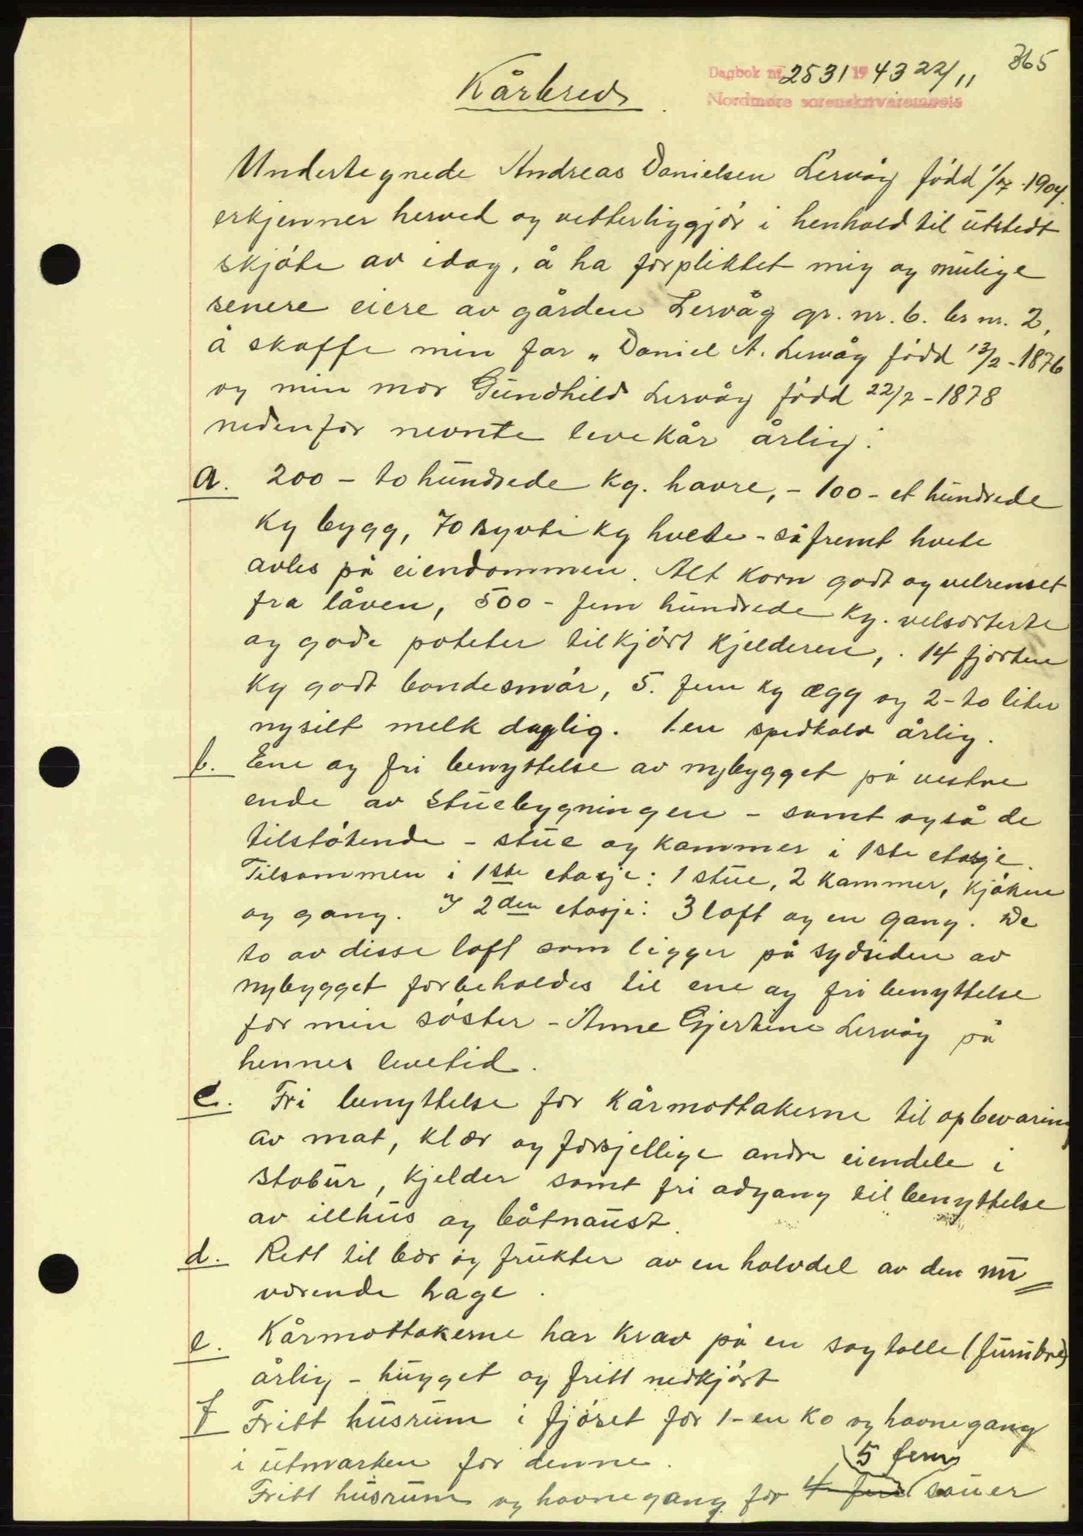 365
Dagbok nr. 2531 19 43 22/11
Nordmøre sorenskriverembete
Kårbrev
Undertegnede Andreas Danielsen Lervåg født 1/7-1904.
erkjenner herved og vitterliggjør i henhold til utstedt
skjøte av idag, å ha forpliktet mig og mulige
senere eiere av gården Lervåg gr. nr. 6. br nr. 2,
å skaffe min far „ Daniel A. Lervåg født 13/2-1876
og min mor Gundhild Lervåg født 22/7-1878
nedenfor nevnte levekår årlig:
a. 200 - to hundrede kg. havre, - 100 - et hundrede
kg bygg, 70 syvti kg hvete - såfremt hvete
avles på eiendommen. Alt korn godt og velrenset
fra låven, 500 - fem hundrede kg. velsorterte
og gode poteter tilkjørt kjelderen, . 14 fjorten
kg godt bondesmør, 5. fem kg egg og 2 - to liter
nysilt melk daglig. 1. en spedkalv årlig.
b. Ene og fri benyttelse av nybygget på vestre
ende av stuebygningen - samt også de
tilstøtende - stue og kammer i 1ste etasje.
Tilsammen i 1ste etasje: 1 stue, 2 kammer, kjøken
og gang. I 2den etasje: 3 loft og en gang. De
to av disse loft som ligger på sydsiden av
nybygget forbeholdes til ene og fri benyttelse
for min søster - Anne Gjertine Lervåg på
hennes levetid.
c. Fri benyttelse for kårmottakerne til opbevaring
av mat, klær og forsjellige andre eiendele i
stabur, kjelder samt fri adgang til benyttelse
av illhus og båtnaust.
d. Rett til bær og frukter av en halvdel av den nu=
værende hage.
e. Kårmottakerne har krav på en sagtolle (furubre)
årlig - hugget og fritt nedkjørt
f Fritt husrum i fjøset for 1 - en ko og havnegang
i utmarken for denne.
5 fem
Fritt husrum og havnegang for 4 fire sauer